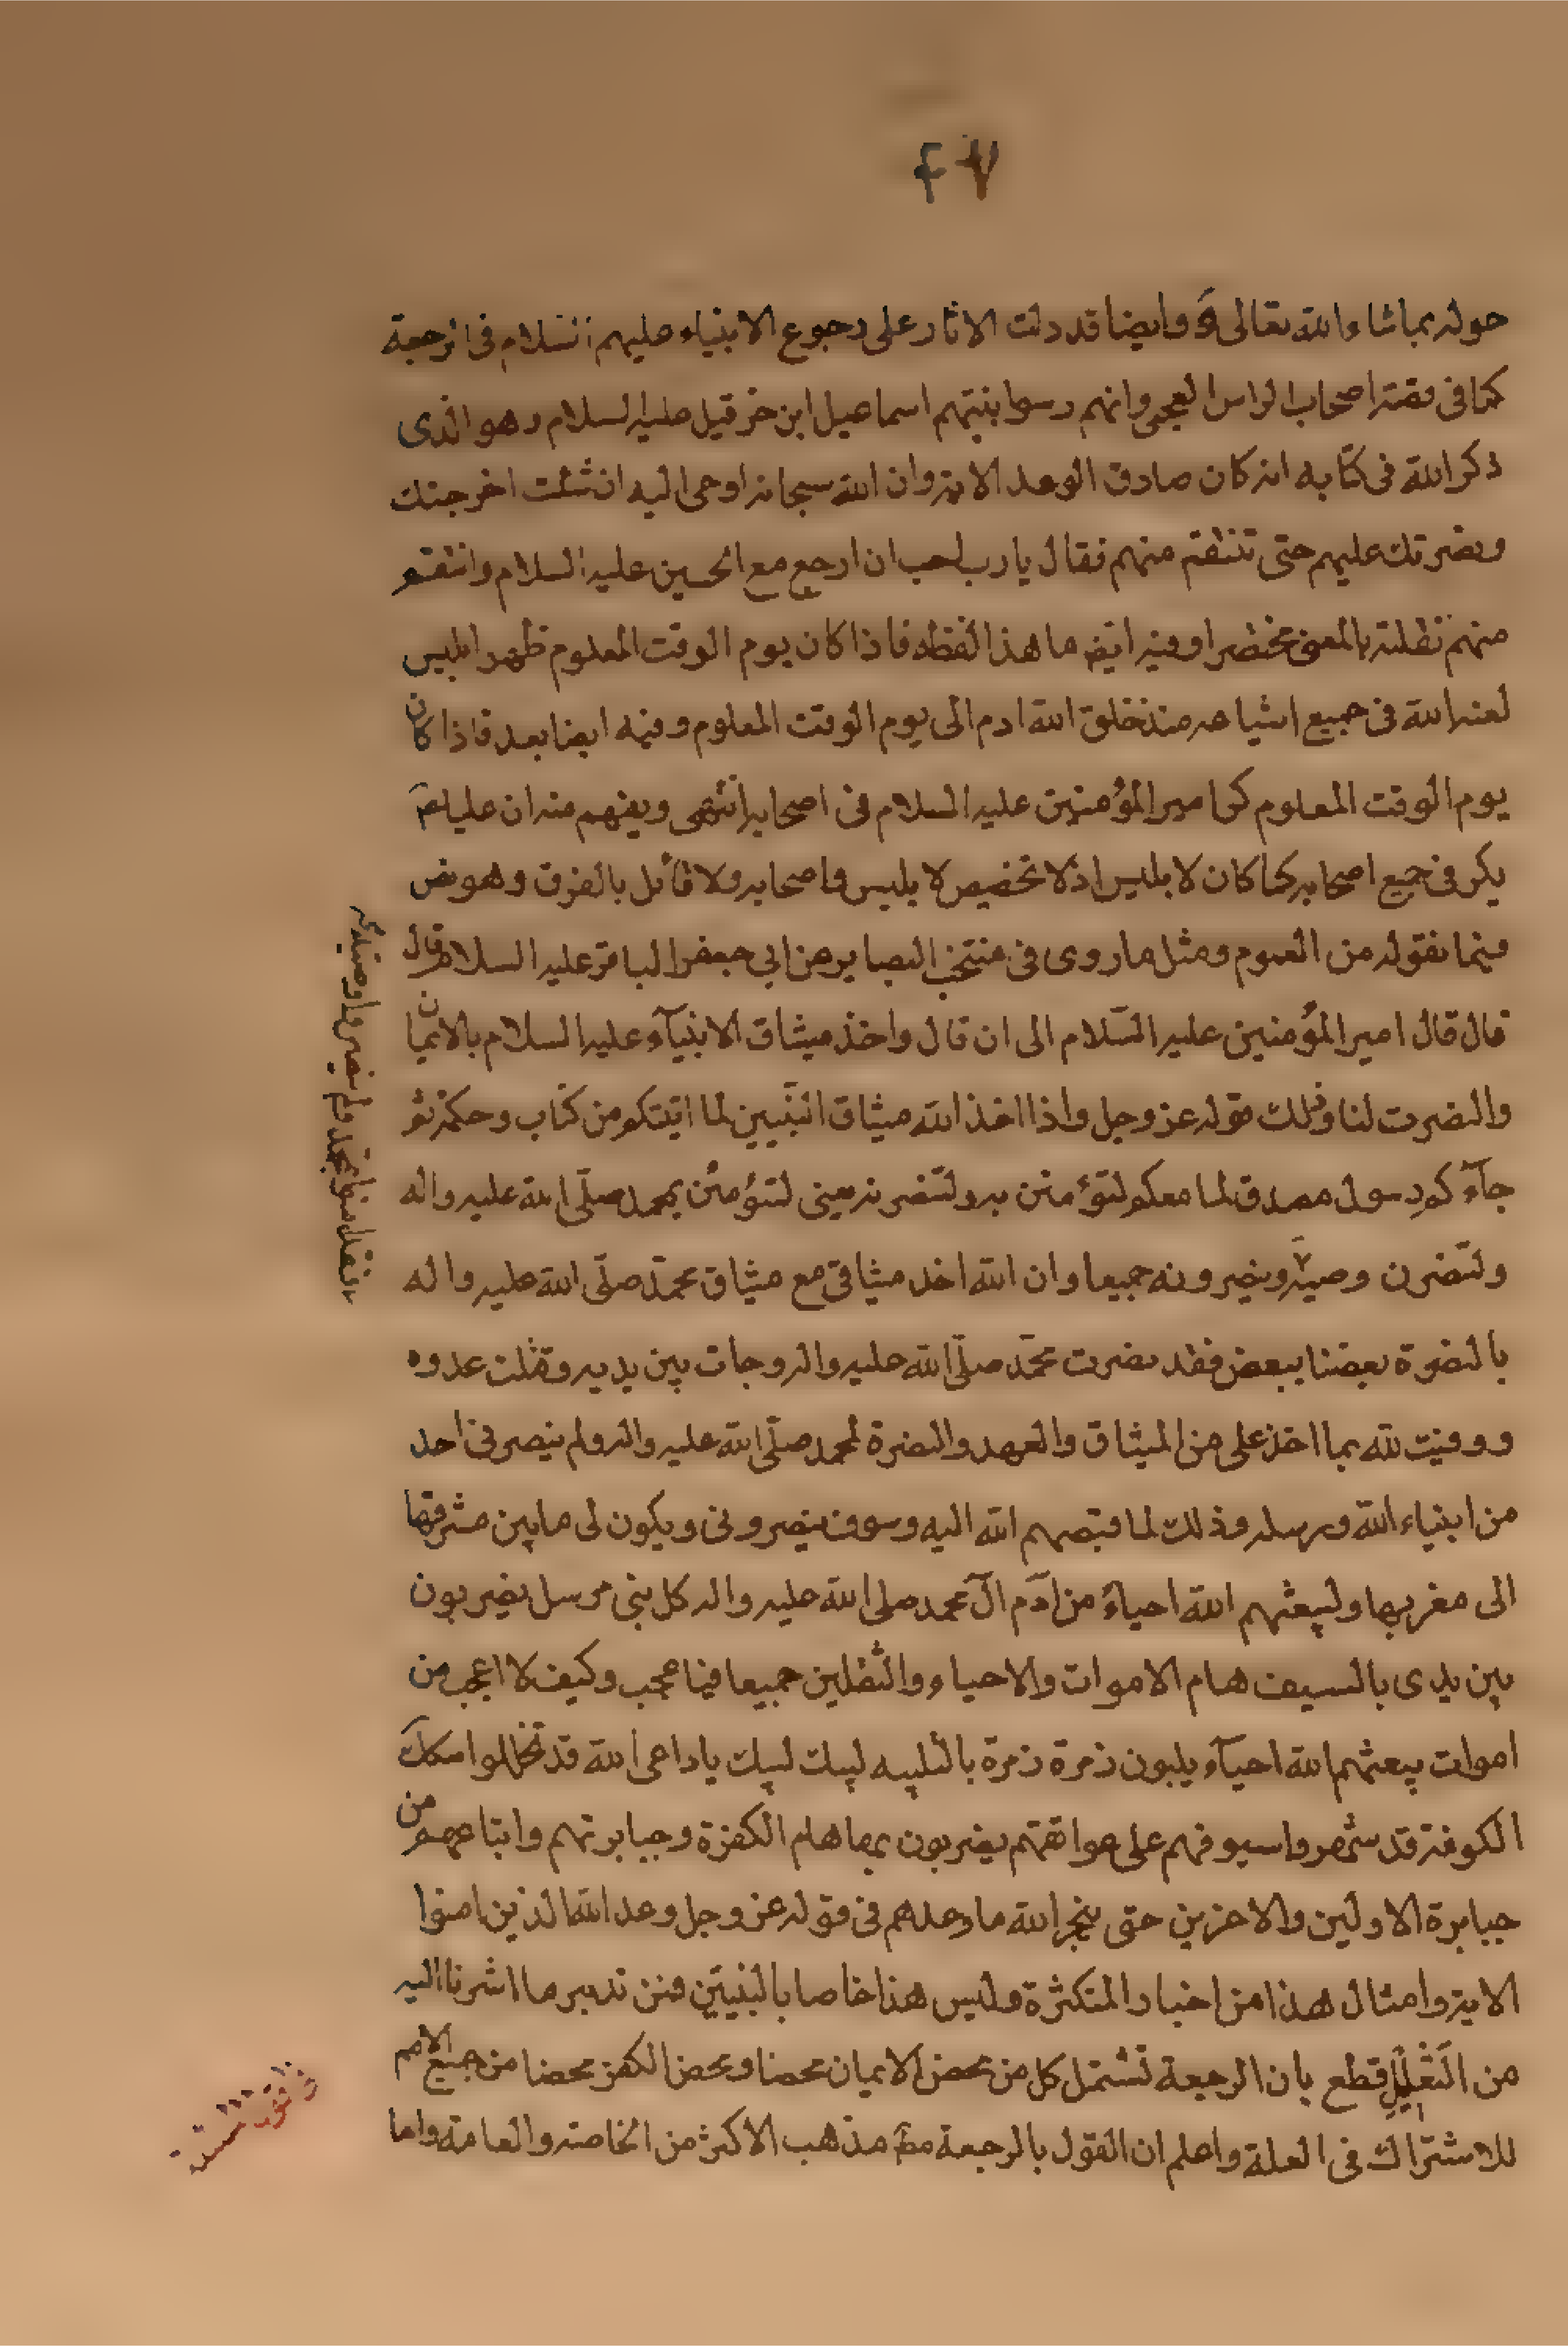 ٤٧
حوله بما شاء الله تعالى وايضا قد دلت الاثار على رجوع الانبياء عليهم السلام في الرجعة
كما في قصة اصحاب الراس العجمى وانهم رسوا بنبيهم اسماعيل ابن حزقيل عليه السلام وهو الذى
ذكر الله في كتابه انه كان صادق الوعد الاية وان الله سبحانه اوحى اليه ان شئت اخرجتك
ونصرتك عليهم حتى تنتقم منهم فقال يا رب احب ان ارجع مع الحسين عليه السلام وانتقم
منهم نقلته بالمعنى مختصرا وفيه ايض ما هذا لفظه فاذا كان يوم الوقت المعلوم ظهر ابليس
لعنه الله في جميع اشياعه منذ خلق الله ادم الى يوم الوقت المعلوم وفيه ايضا بعد فاذا كان
يوم الوقت المعلوم كر امير المؤمنين عليه السلام في اصحابه انتهى ويفهم منه ان عليا ع
يكر في جميع اصحابه كما كان لابليس اذ لا تخصيص لابليس واصحابه ولا قائل بالفرق وهو نص
فيما نقوله من العموم ومثل ما روى في منتخب البصاير عن ابي جعفر الباقر عليه السلام قال
قال قال امير المؤمنين عليه السّلام الى ان قال واخذ ميثاق الانبيآء عليه السلام بالايمان
والنصرت لنا وذلك قوله عز وجل واذا اخذ الله ميثاق النبيين لما اتيتكم من كتاب وحكمة ثم
جآءكم رسول مصدق لما معكم لتؤمنن به ولتنصرنه يعنى لتؤمنن بمحمد صلّى الله عليه واله
ولتنصرن وصيه وينصرونه جميعا وان الله اخذ ميثاقى مع ميثاق محمّد صلّى الله عليه واله
بالنصرة بعضنا ببعض فقد نصرت محمّد صلّى الله عليه واله وجات بين يديه وقتلت عدوه
ووفيت لله بما اخذ على من الميثاق والعهد والنصرة لمحمد صلّى الله عليه واله ولم ينصرنى احد
من انبياء الله ورسله وذلك لما قبضهم الله اليه وسوف ينصرونى ويكون لى ما بين مشرقها
الى مغربها وليبعثهم الله احياء من آدم الى محمد صلى الله عليه واله كل نبى مرسل يضربون
بين يدى بالسيف هام الاموات والاحياء والثقلين جميعا فيا عجب وكيف لا اعجب من
اموات يبعثهم الله احيآء يلبون زمرة زمرة بالتلبيه لبيك لبيك يا داعى الله قد تخللوا سكك
الكوفة قد شهروا سيوفهم على عواتقهم يضربون بها هام الكفرة وجبابرتهم واتباعهم من
جبابرة الاولين والاخرين حتى ينجز الله ما وعدهم في قوله عز وجل وعد الله الذين امنوا
الاية وامثال هذا من اخبار المتكثرة وليس هذا خاصا بالنبيّين فمن تدبر ما اشرنا اليه
من التعليل قطع بان الرجعة تشتمل كل من محض الايمان محضا ومحض الكفر محضا من جميع الامم
للاشتراك في العلة واعلم ان القول بالرجعة مذهب الاكثر من الخاصة والعامة واما
فقد امنوا بمحمد ولم ينصروا وصيه